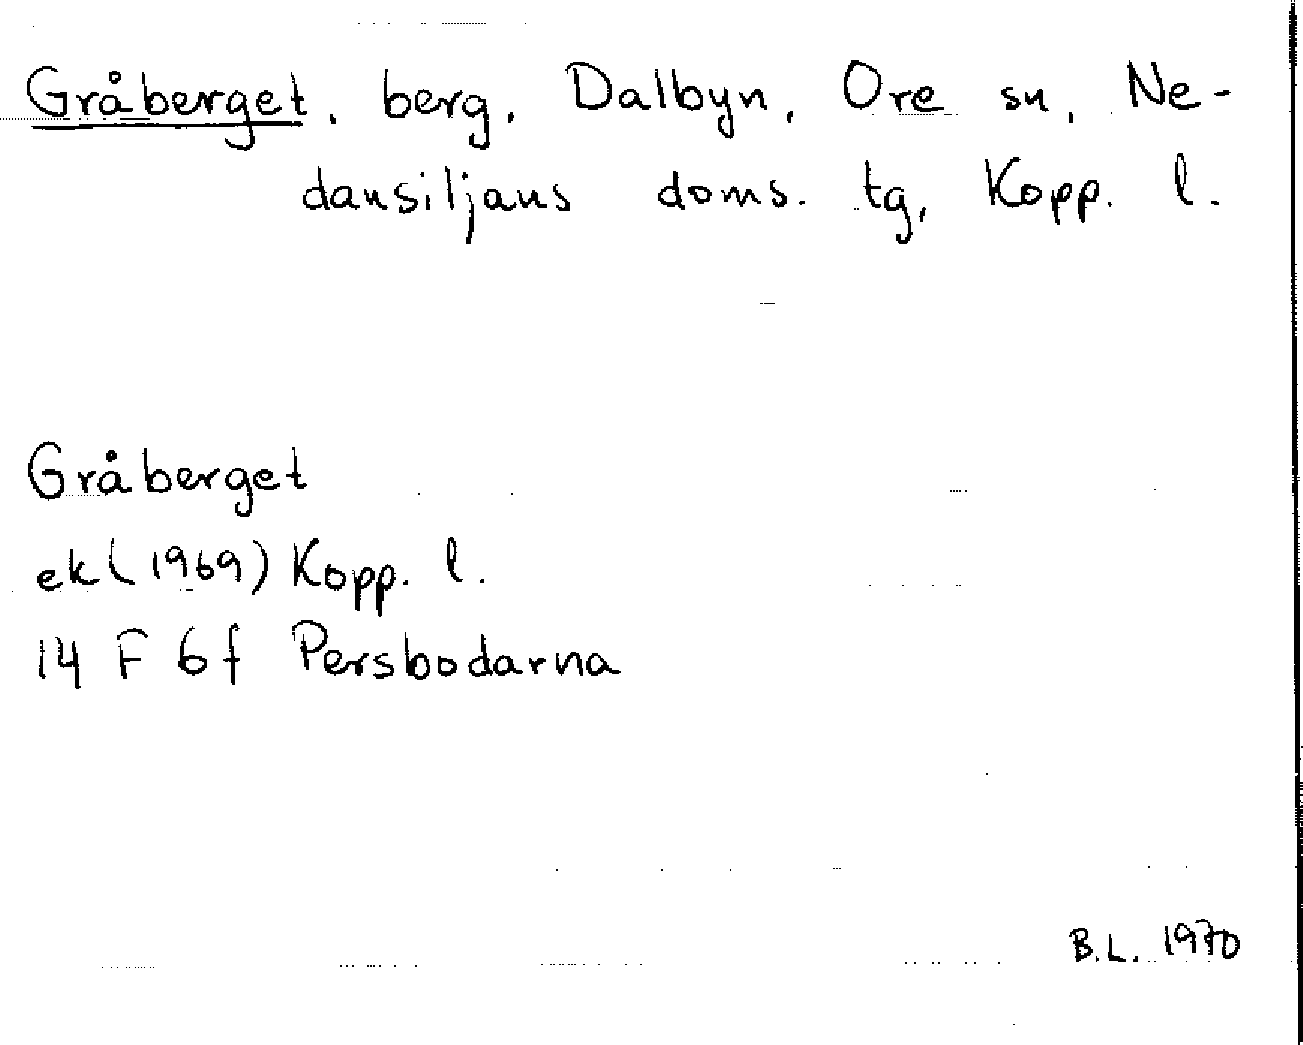 Gråberget, berg, Dalbyn, Ore sn, Ne-
dansiljans doms. tg, Kopp. l.
Gråberget
ek (1969) Kopp. l.
14 F 6f Persbodarna
B.L. 1970